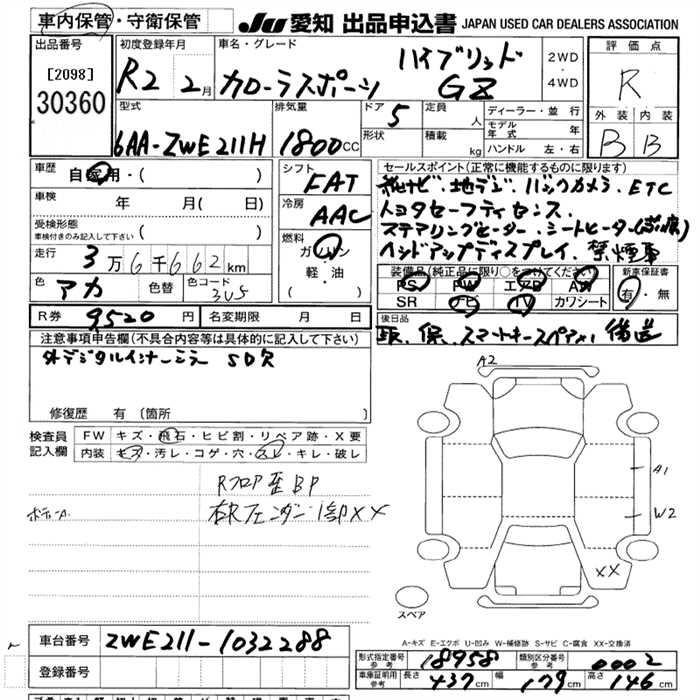 車内保管・守衛保管
JU 愛知 出品申込書 JAPAN USED CAR DEALERS ASSOCIATION
出品番号
[2098]
30360
初度登録年月
R2 2月
車名・グレード
ハイブリッド
カローラスポーツ GZ
2WD
・
4WD
評価点
R
外装 内装
B B
型式
6AA-ZWE211H
排気量
1800CC
ドア 5
形状
定員 人
積載 kg
ディーラー・並行
モデル年式 年
ハンドル 左・右
車歴
自家用・( )
車検 年 月( 日)
受検形態
車検付きのみ記入して下さい ( )
走行 3万6千662km
色 アカ 色替 色コード 3U5
シフト
FAT
冷房
AAC
燃料
ガソリン
軽・油
( ・ )
セールスポイント(正常に機能するものに限ります)
純ナビ、地デジ、バックカメラ、ETC
トヨタセーフティセンス、
ステアリングヒーター、シートヒーター
ヘッドアップディスプレイ、禁煙車
装備品(純正品に限り○をつけてください)
PS PW エアB AW
SR ナビ TV カワシート
新車保証書
有・無
R券 9520円 名変期限 月 日
後日品
取、保、スマートキースペア×1 後送
注意事項申告欄(不具合内容等は具体的に記入して下さい)
外デジタルインナーミラー SD欠
修復歴 有(箇所
検査員
記入欄
FW キズ・飛石・ヒビ割・リペア跡・X要
内装 キズ・汚レ・コゲ・穴・スレ・キレ・破レ
RフロP歪BP
右Rフェンダー1部××
ボデー
A2
A1
W2
××
スペア
A-キズ E-エクボ U-凹み W-補修跡 S-サビ C-腐食 XX-交換済
車台番号 ZWE211-1032288
登録番号
形式指定番号 参考 18958
類別区分番号 参考 0002
車庫証明用 参考 長さ 437cm 幅 179cm 高さ 146cm